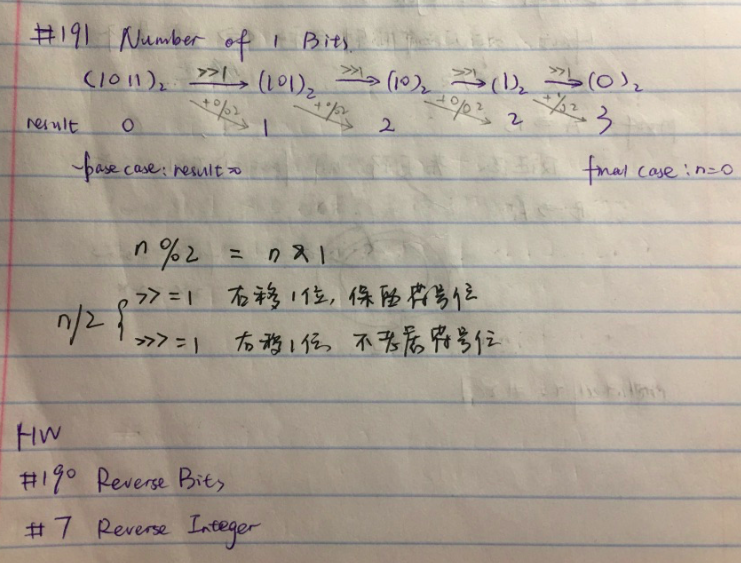 #191 Number of 1 Bits
(1011)₂ >>1 (101)₂ >>1 (10)₂ >>1 (1)₂ >>1 (0)₂
+%2 +%2 +%2 +%2
result 0 1 2 2 3
base case: result=0 final case: n=0
n%2 = n&1
n/2 { >>=1 右移1位, 保留符号位
>>>=1 右移1位, 不考虑符号位
HW
#190 Reverse Bits
#7 Reverse Integer